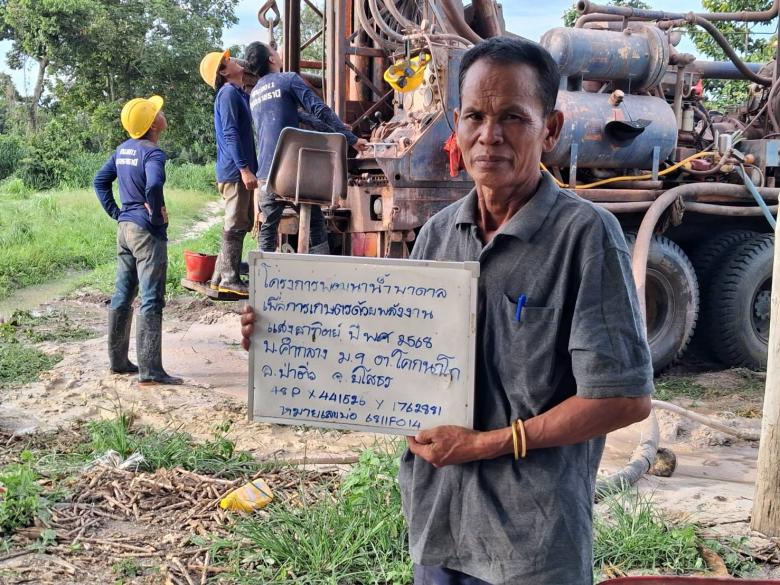 โครงการพัฒนาน้ำบาดาล
เพื่อการเกษตรด้วยพลังงาน
แสงอาทิตย์ ปี พศ 2568
บ.คำกลาง ม.9 ต.โคกนาโก
อ.ป่าติ้ว จ.ยโสธร
48P X 441526 Y 1762881
หมายเลขบ่อ 6811F014